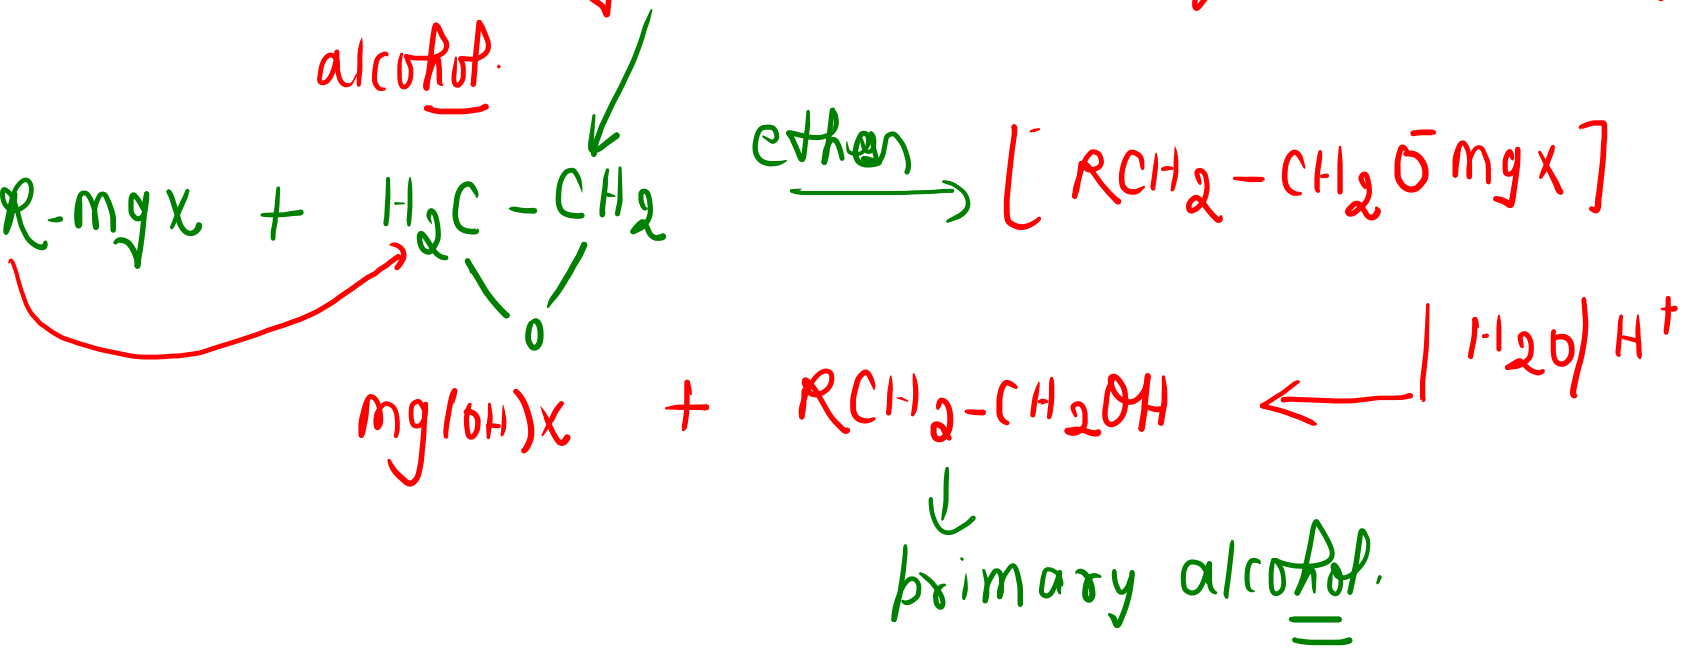 alcohol.
R-mgx + H₂C-CH₂ ether [RCH₂-CH₂O⁻mgx]
O
H₂O/H⁺
mg(OH)x + RCH₂-CH₂OH
primary alcohol.